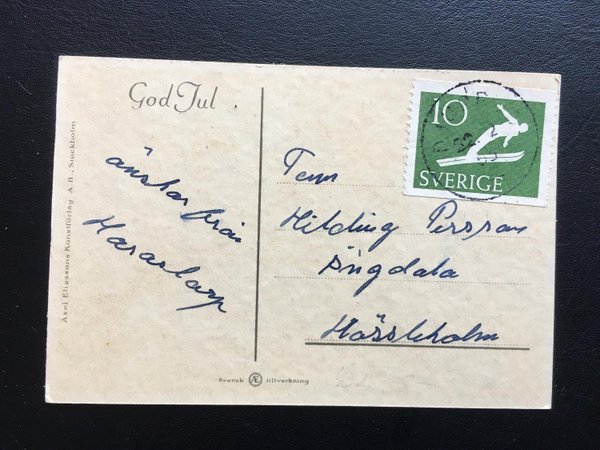 God Jul
önskar från
Hararlarp
Axel Eliassons Konstförlag A.B., Stockholm
10
SVERIGE
22.12
53
Hilding Persson
Ängdala
Hässleholm
Svensk Æ tillverkning